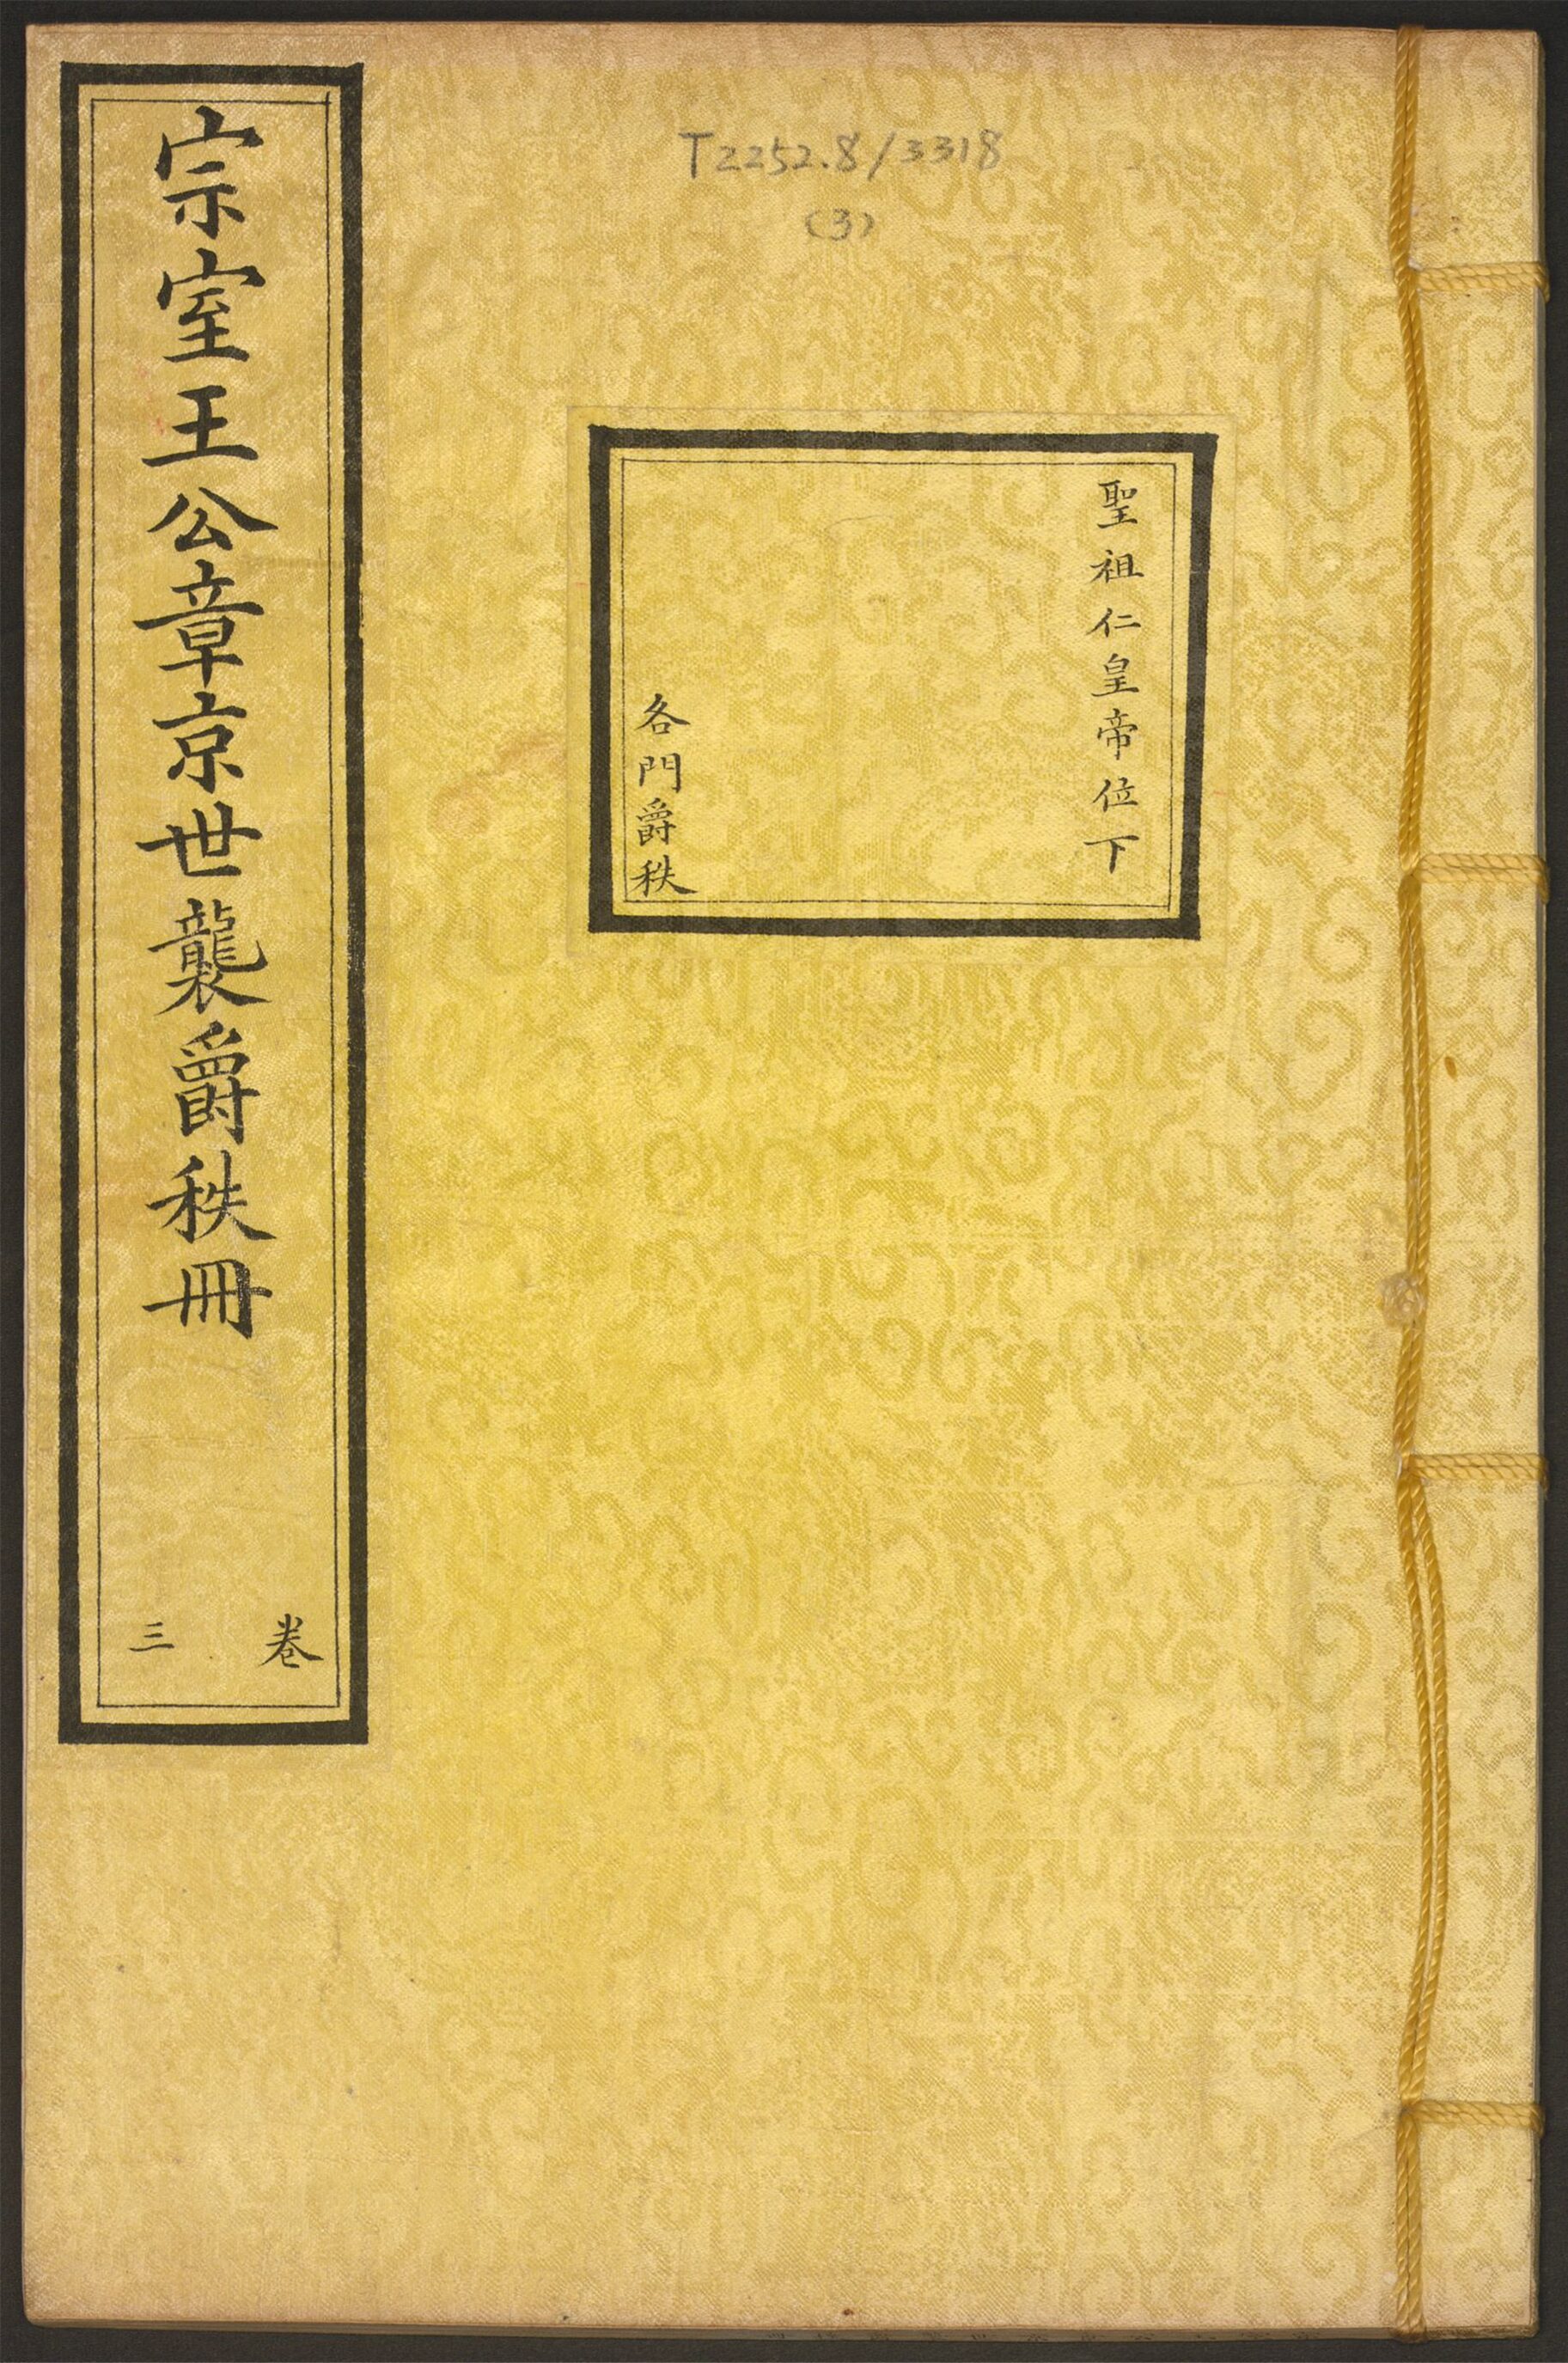 T2252.8/3318
(3)
聖祖仁皇帝位下
各門爵秩
宗室王公章京世襲爵秩冊
卷三